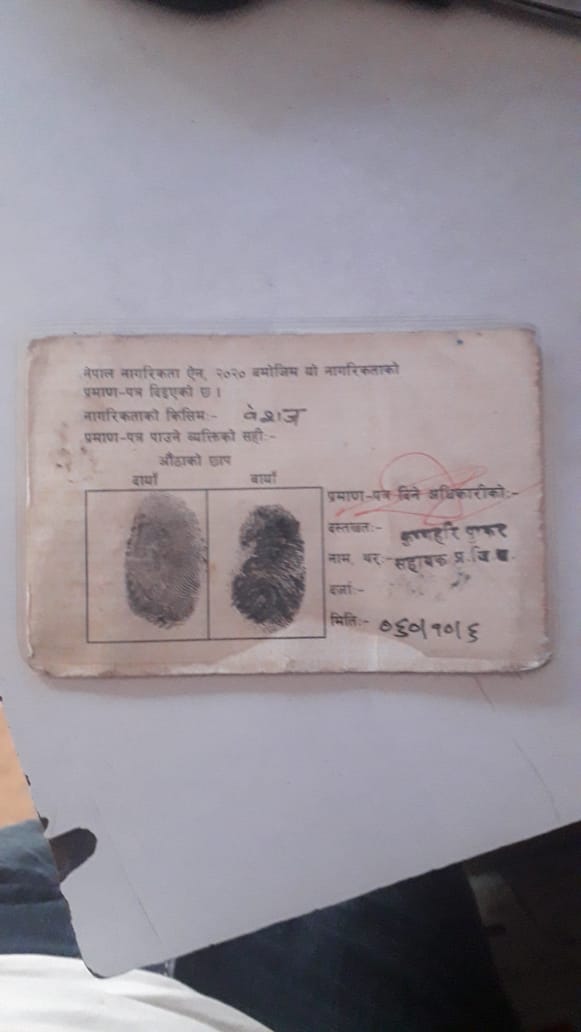 नेपाल नागरिकता ऐन, २०२० बमोजिम यो नागरिकताको
प्रमाण-पत्र दिइएको छ ।
नागरिकताको किसिमः- वंशज
प्रमाण-पत्र पाउने व्यक्तिको सहीः-
औंठाको छाप
दायाँ बायाँ
प्रमाण-पत्र दिने अधिकारीकोः-
दस्तखतः-
नाम, थरः- सहायक प्र.जि.अ.
दर्जाः-
मितिः- ०६०।१०।६